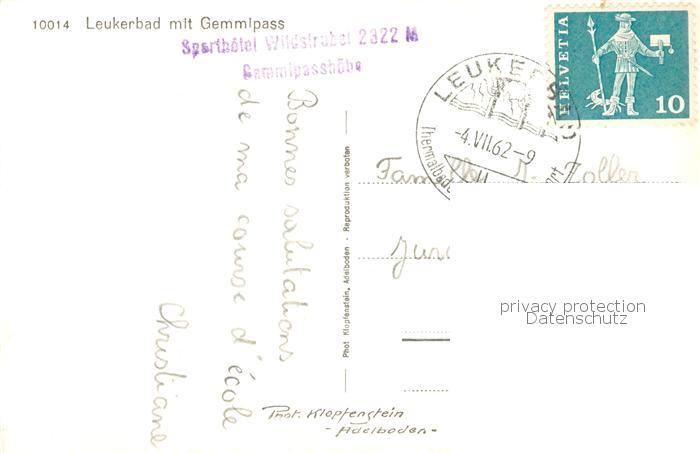 10014 Leukerbad mit Gemmipass
Sporthôtel Wildstrubel 2322 M
Gemmipasshöhe
Bonnes salutations
de ma course d'école
Christiane
Phot Klopfenstein, Adelboden - Reproduktion verboten
Phot. Klopfenstein
- Adelboden -
LEUKERBAD
-4.VII.62-9
Thermalbade
HELVETIA
10
Zoller
privacy protection
Datenschutz